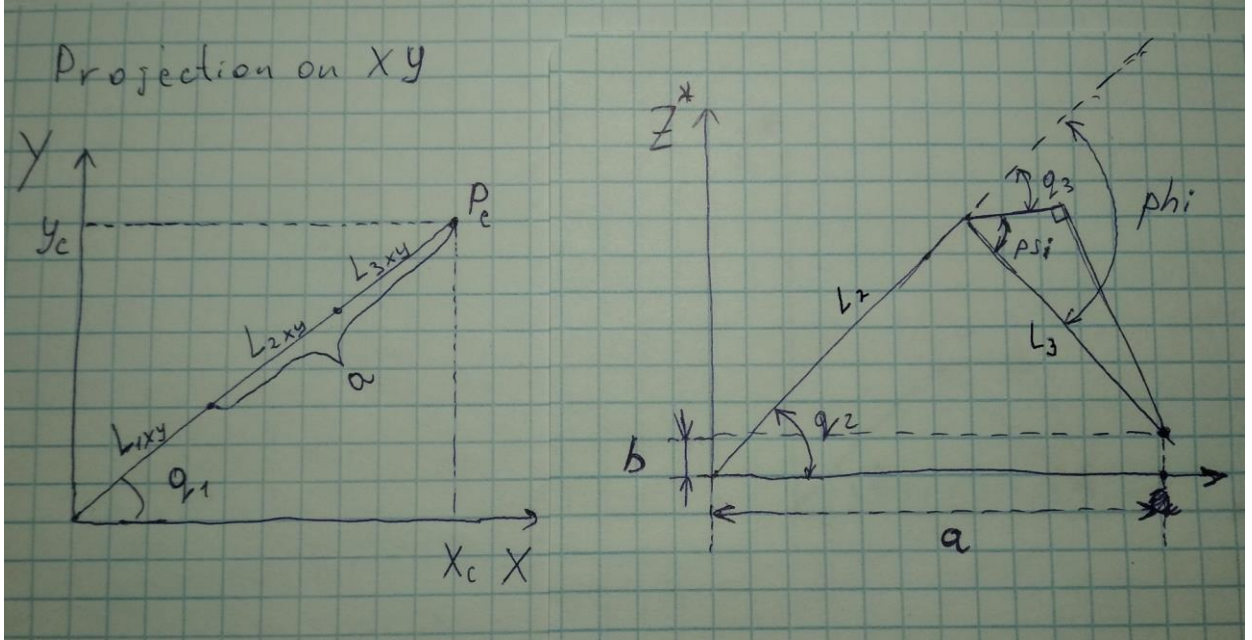 Projection on XY
Y
yc
Pc
L3xy
L2xy
a
L1xy
q1
Xc X
Z*
q3
phi
psi
L2
L3
q2
b
a